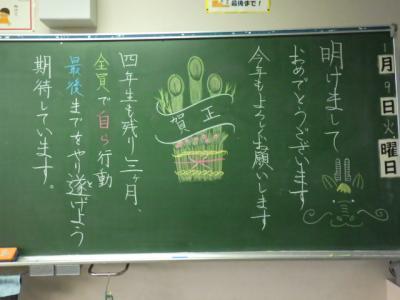 1月9日火曜日
明けまして
おめでとうございます
今年もよろしくお願いします
賀正
四年生も残り三ヶ月、
全員で自ら行動
最後までをやり遂げよう
と
期待しています。
最後まで!